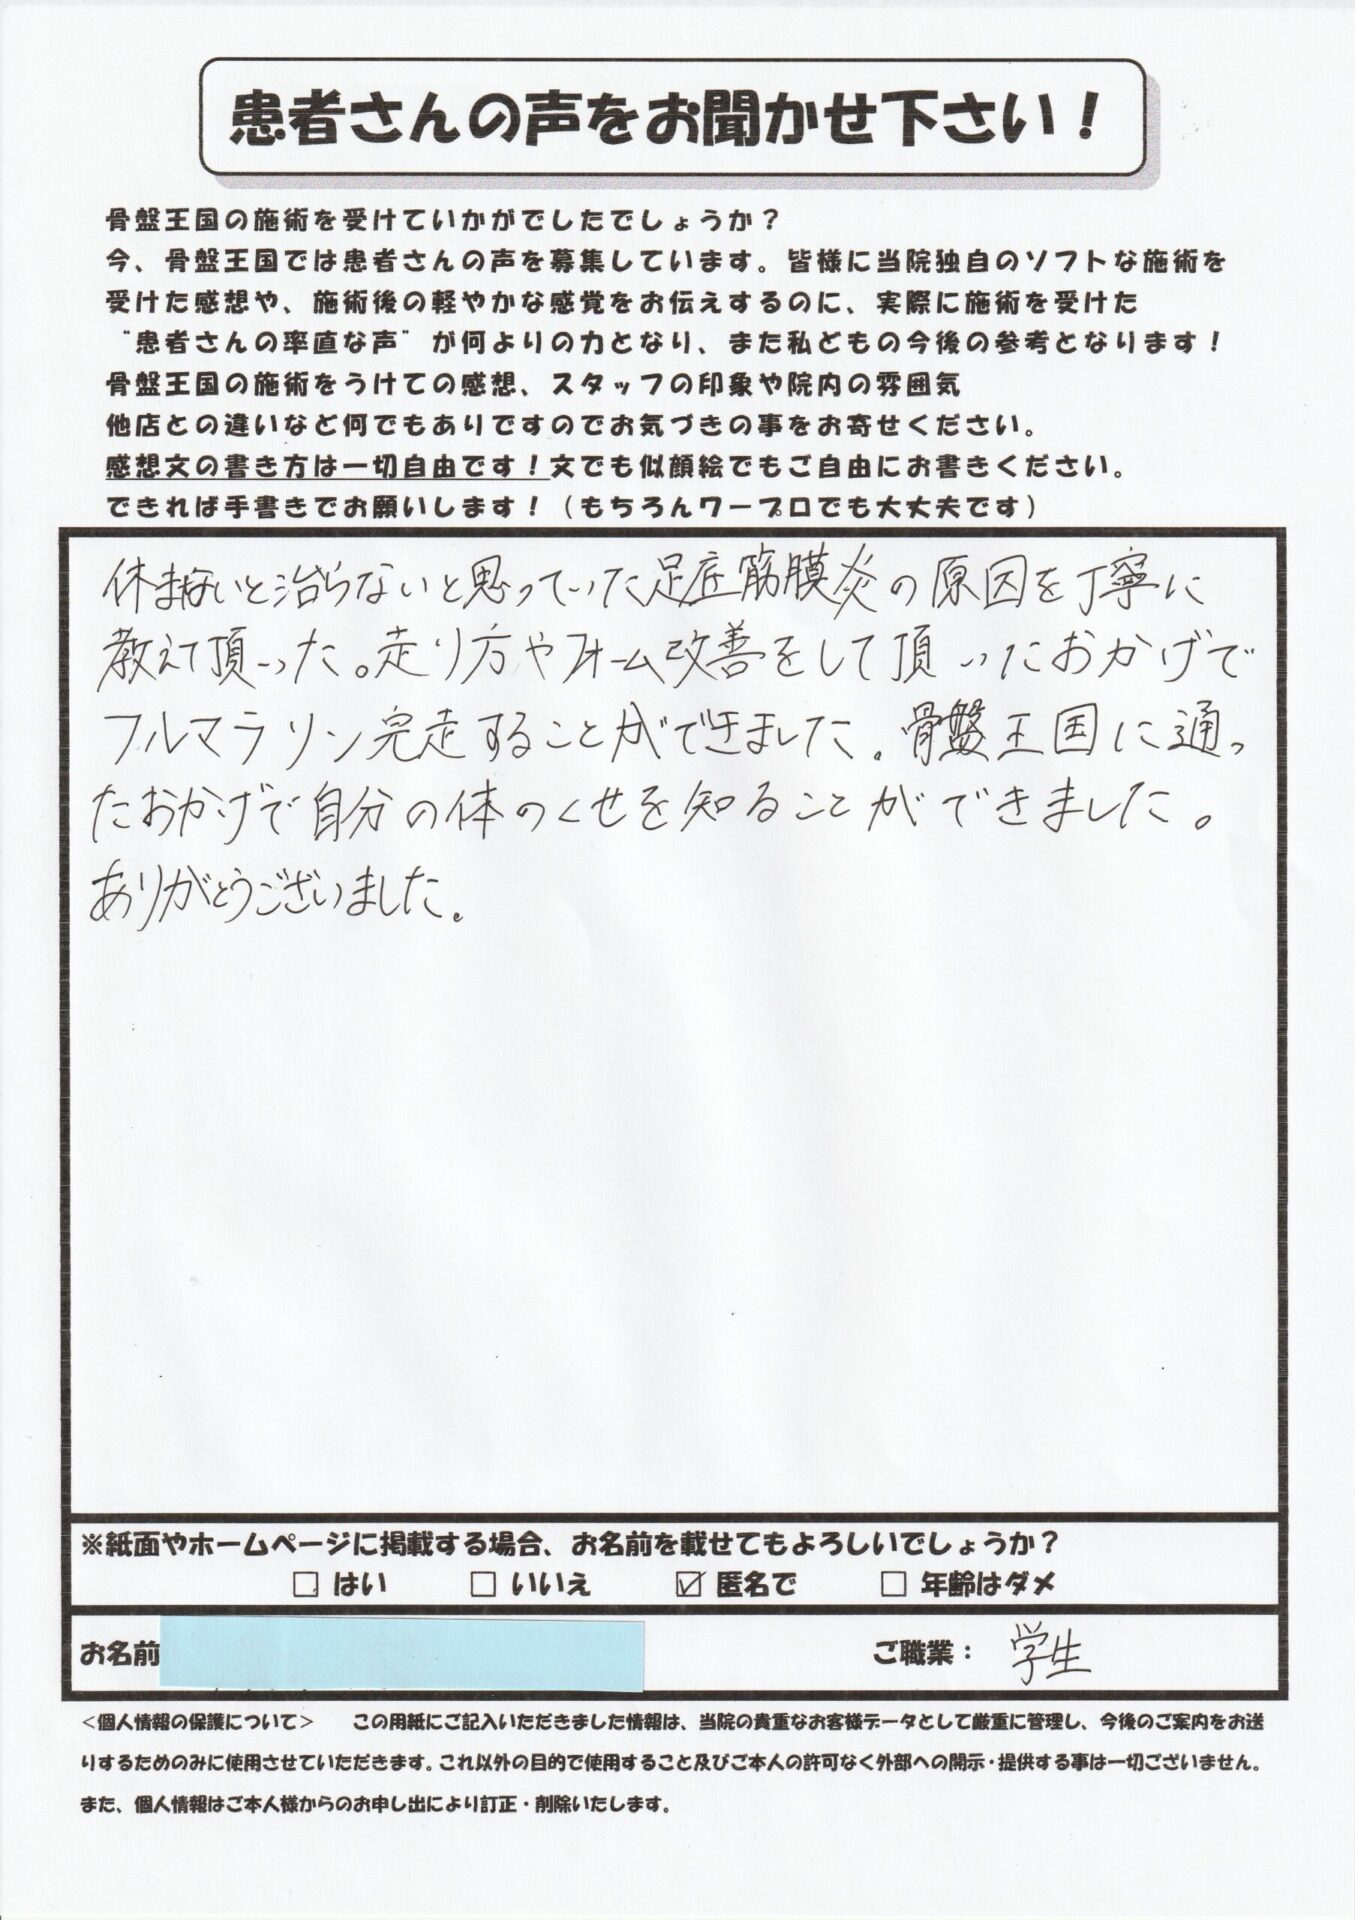 患者さんの声をお聞かせ下さい！
骨盤王国の施術を受けていかがでしたでしょうか？
今、骨盤王国では患者さんの声を募集しています。皆様に当院独自のソフトな施術を
受けた感想や、施術後の軽やかな感覚をお伝えするのに、実際に施術を受けた
“患者さんの率直な声”が何よりの力となり、また私どもの今後の参考となります！
骨盤王国の施術をうけての感想、スタッフの印象や院内の雰囲気
他店との違いなど何でもありですのでお気づきの事をお寄せください。
感想文の書き方は一切自由です！文でも似顔絵でもご自由にお書きください。
できれば手書きでお願いします！（もちろんワープロでも大丈夫です）
休まないと治らないと思っていた足底筋膜炎の原因を丁寧に
教えて頂いった。走り方やフォーム改善をして頂いたおかげで
フルマラソン完走することができました。骨盤王国に通っ
たおかげで自分の体のくせを知ることができました。
ありがとうございました。
※紙面やホームページに掲載する場合、お名前を載せてもよろしいでしょうか？
□ はい □ いいえ ☑ 匿名で □ 年齢はダメ
お名前 ご職業： 学生
＜個人情報の保護について＞ この用紙にご記入いただきました情報は、当院の貴重なお客様データとして厳重に管理し、今後のご案内をお送
りするためのみに使用させていただきます。これ以外の目的で使用すること及びご本人の許可なく外部への開示・提供する事は一切ございません。
また、個人情報はご本人様からのお申し出により訂正・削除いたします。